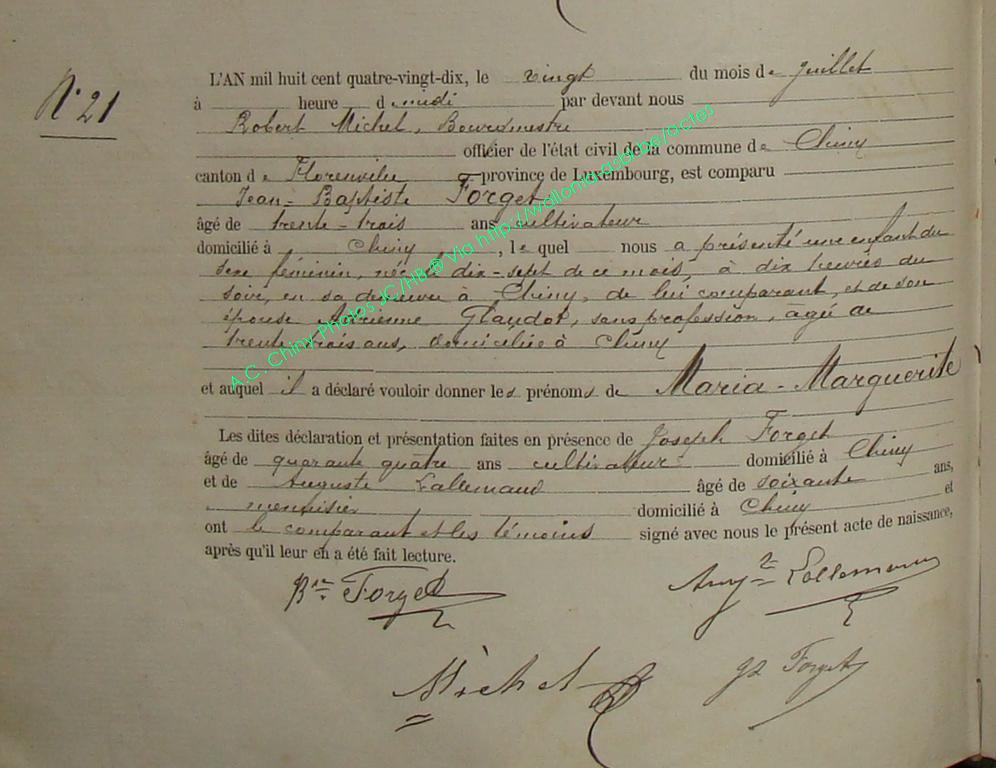 N° 21
L'AN mil huit cent quatre-vingt-dix, le vingt du mois de Juillet
à heure de midi par devant nous
Robert Michel, Bourgmestre
officier de l'état civil de la commune de Chiny
canton de Florenville province de Luxembourg, est comparu
Jean-Baptiste Forget
âgé de trente-trois ans cultivateur
domicilié à Chiny, le quel nous a présenté une enfant du
sexe féminin, née le dix-sept de ce mois, à dix heures du
soir, en sa demeure à Chiny, de lui comparant, et de son
épouse Adrienne Glaudot, sans profession, âgée de
trente trois ans, domiciliée à Chiny
et auquel il a déclaré vouloir donner les prénoms de Maria-Marguerite
Les dites déclaration et présentation faites en présence de Joseph Forget
âgé de quarante quatre ans cultivateur domicilié à Chiny
et de Auguste Lallemand âgé de soixante ans,
menuisier domicilié à Chiny et
ont le comparant et les témoins signé avec nous le présent acte de naissance,
après qu'il leur en a été fait lecture.
Bte Forget
Aug Lallemand
Michel
Forget
A.C. Chiny Photos JC/HB ® Via http://wallonia.asbope/actes